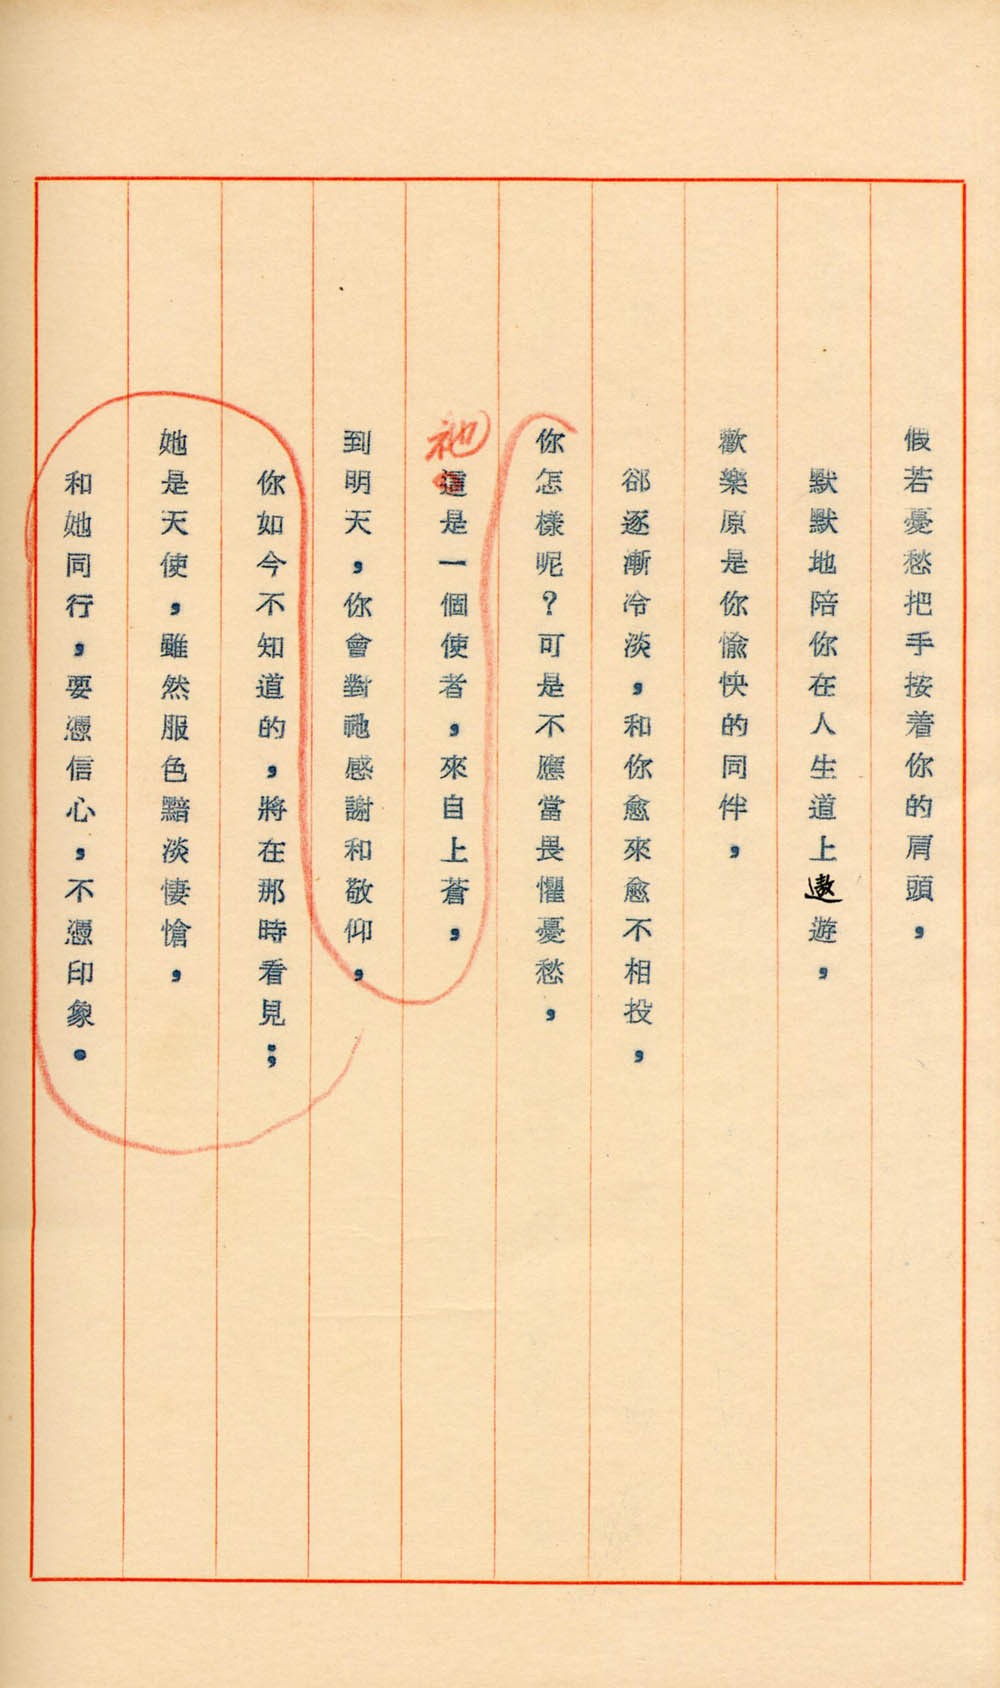 假若憂愁把手按着你的肩頭，
默默地陪你在人生道上遨遊，
歡樂原是你愉快的同伴，
郤逐漸冷淡，和你愈來愈不相投，
你怎樣呢？可是不應當畏懼憂愁，
祂這是一個使者，來自上蒼，
到明天，你會對祂感謝和敬仰，
你如今不知道的，將在那時看見；
她是天使，雖然服色黯淡悽愴，
和她同行，要憑信心，不憑印象。